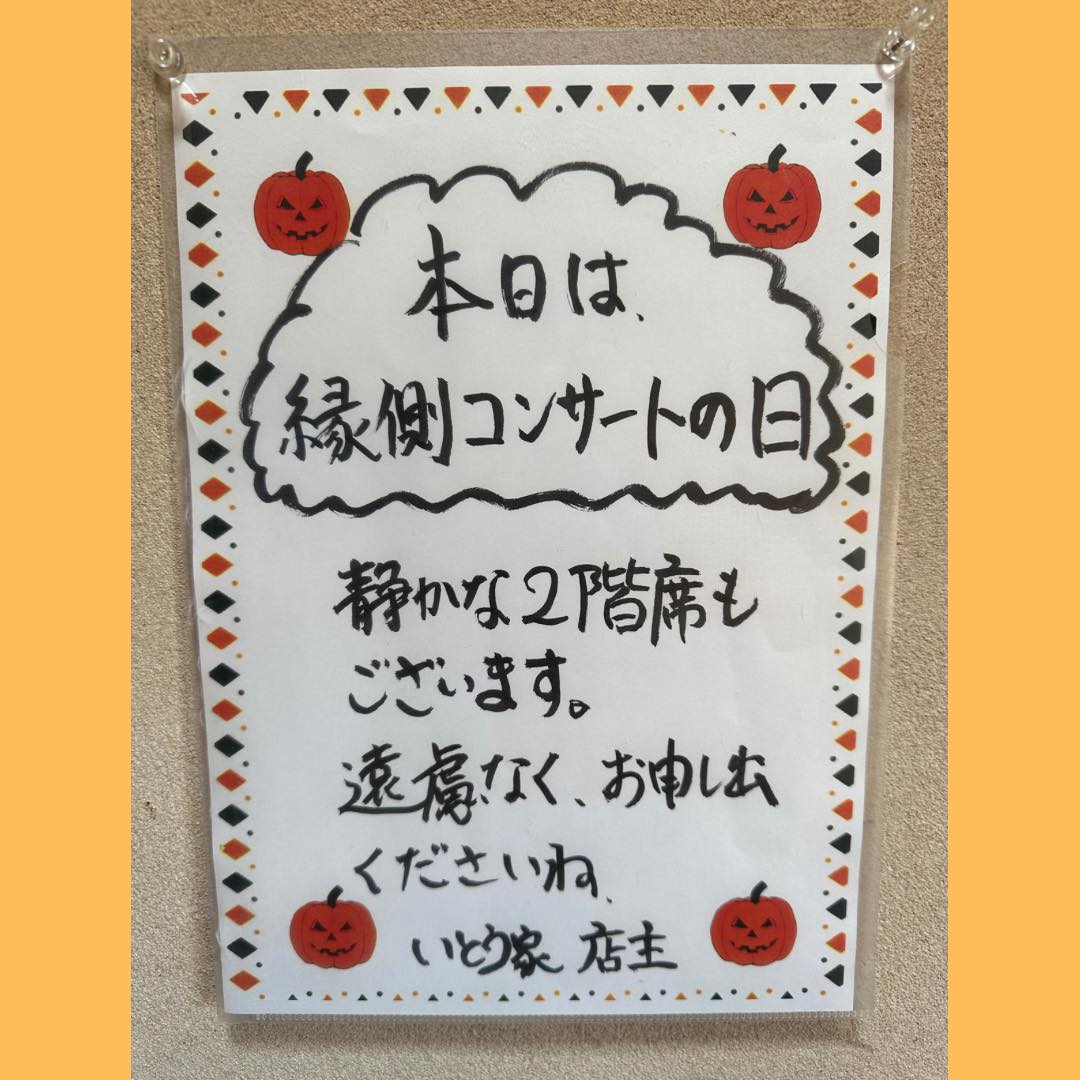 本日は、
縁側コンサートの日
静かな2階席も
ございます。
遠慮なく、お申し出
くださいね、
いとう家 店主